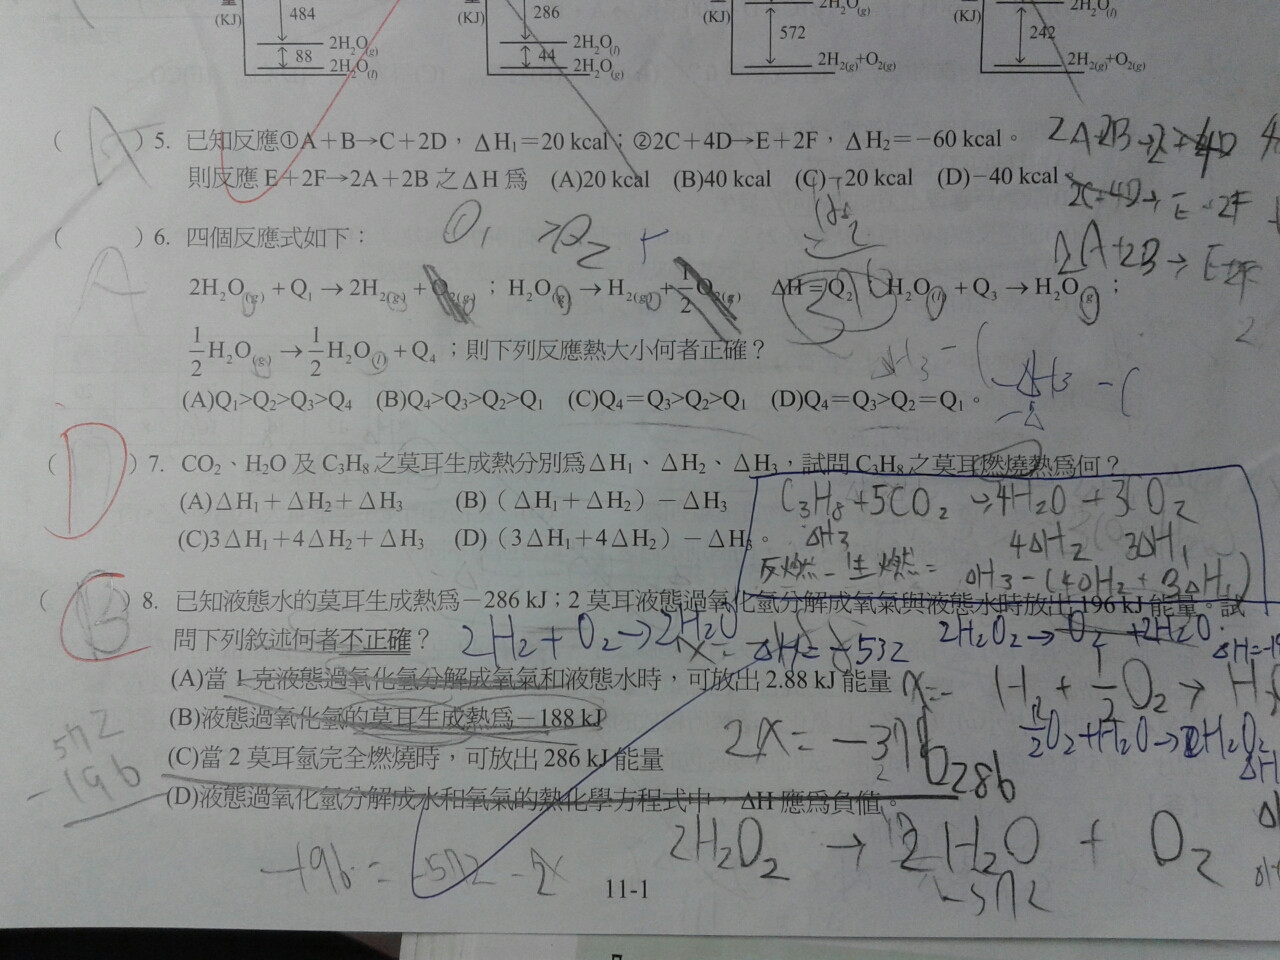 (KJ) 484 2H₂O(g) 88 2H₂O(l)
(KJ) 286 2H₂O(l) 44 2H₂O(g)
2H₂O(g) 572 2H₂(g)+O₂(g)
(KJ) 2H₂O(l) 242 2H₂(g)+O₂(g)
( A )5. 已知反應①A+B→C+2D，ΔH₁=20 kcal；②2C+4D→E+2F，ΔH₂=−60 kcal。
則反應 E+2F→2A+2B 之ΔH 為 (A)20 kcal (B)40 kcal (C)−20 kcal (D)−40 kcal。
2C+4D→E+2F
2A+2B→E+2F
2
( A )6. 四個反應式如下：
Q₁ >Q₂
2H₂O(g) + Q₁ → 2H₂(g) + O₂(g) ；H₂O(l) → H₂(g) + 1/2 O₂(g) ΔH=Q₂；H₂O(l) + Q₃ → H₂O(g)；
1/2 H₂O(g) → 1/2 H₂O(l) + Q₄；則下列反應熱大小何者正確？
ΔH3 − (
−ΔH3 − (
(A)Q₁>Q₂>Q₃>Q₄ (B)Q₄>Q₃>Q₂>Q₁ (C)Q₄=Q₃>Q₂>Q₁ (D)Q₄=Q₃>Q₂=Q₁。
( D )7. CO₂、H₂O 及 C₃H₈ 之莫耳生成熱分別為ΔH₁、ΔH₂、ΔH₃，試問 C₃H₈ 之莫耳燃燒熱為何？
(A)ΔH₁+ΔH₂+ΔH₃ (B)（ΔH₁+ΔH₂）−ΔH₃
(C)3ΔH₁+4ΔH₂+ΔH₃ (D)（3ΔH₁+4ΔH₂）−ΔH₃。
C₃H₈+5CO₂→4H₂O+3CO₂
ΔH₃ 4ΔH₂ 3ΔH₁
反燃−生燃= ΔH₃−(4ΔH₂+3ΔH₁)
( B )8. 已知液態水的莫耳生成熱為−286 kJ；2 莫耳液態過氧化氫分解成氧氣與液態水時放出 196 kJ 能量。試
問下列敘述何者不正確？
2H₂+O₂→2H₂O
ΔH=−532
2H₂O₂→O₂+2H₂O
(A)當 1 克液態過氧化氫分解成氧氣和液態水時，可放出 2.88 kJ 能量
(B)液態過氧化氫的莫耳生成熱為−188 kJ
(C)當 2 莫耳氫完全燃燒時，可放出 286 kJ 能量
(D)液態過氧化氫分解成水和氧氣的熱化學方程式中，ΔH 應為負值。
572
−196
2x=−376
286
2H₂O₂ → 2H₂O + O₂
−572
−196=−572−2x
11-1